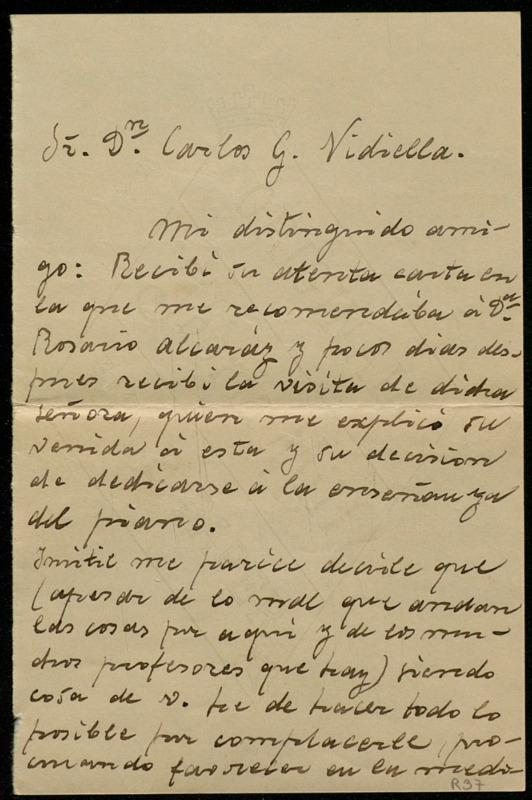 Sr. Dn. Carlos G. Vidiella.
Mi distinguido ami-
go: Recibí su atenta carta en
la que me recomendaba á Da.
Rosario Alcaráz y pocos dias des-
pues recibí la visita de dicha
señora, quien me explicó su
venida á esta y su decision
de dedicarse á la enseñanza
del piano.
Inutil me parece decirle que
(apesar de lo mal que andan
las cosas por aqui y de los mu-
chos profesores que hay) siendo
cosa de V. he de hacer todo lo
posible por complacerle, pro-
curando favorecer en la medi-
R37